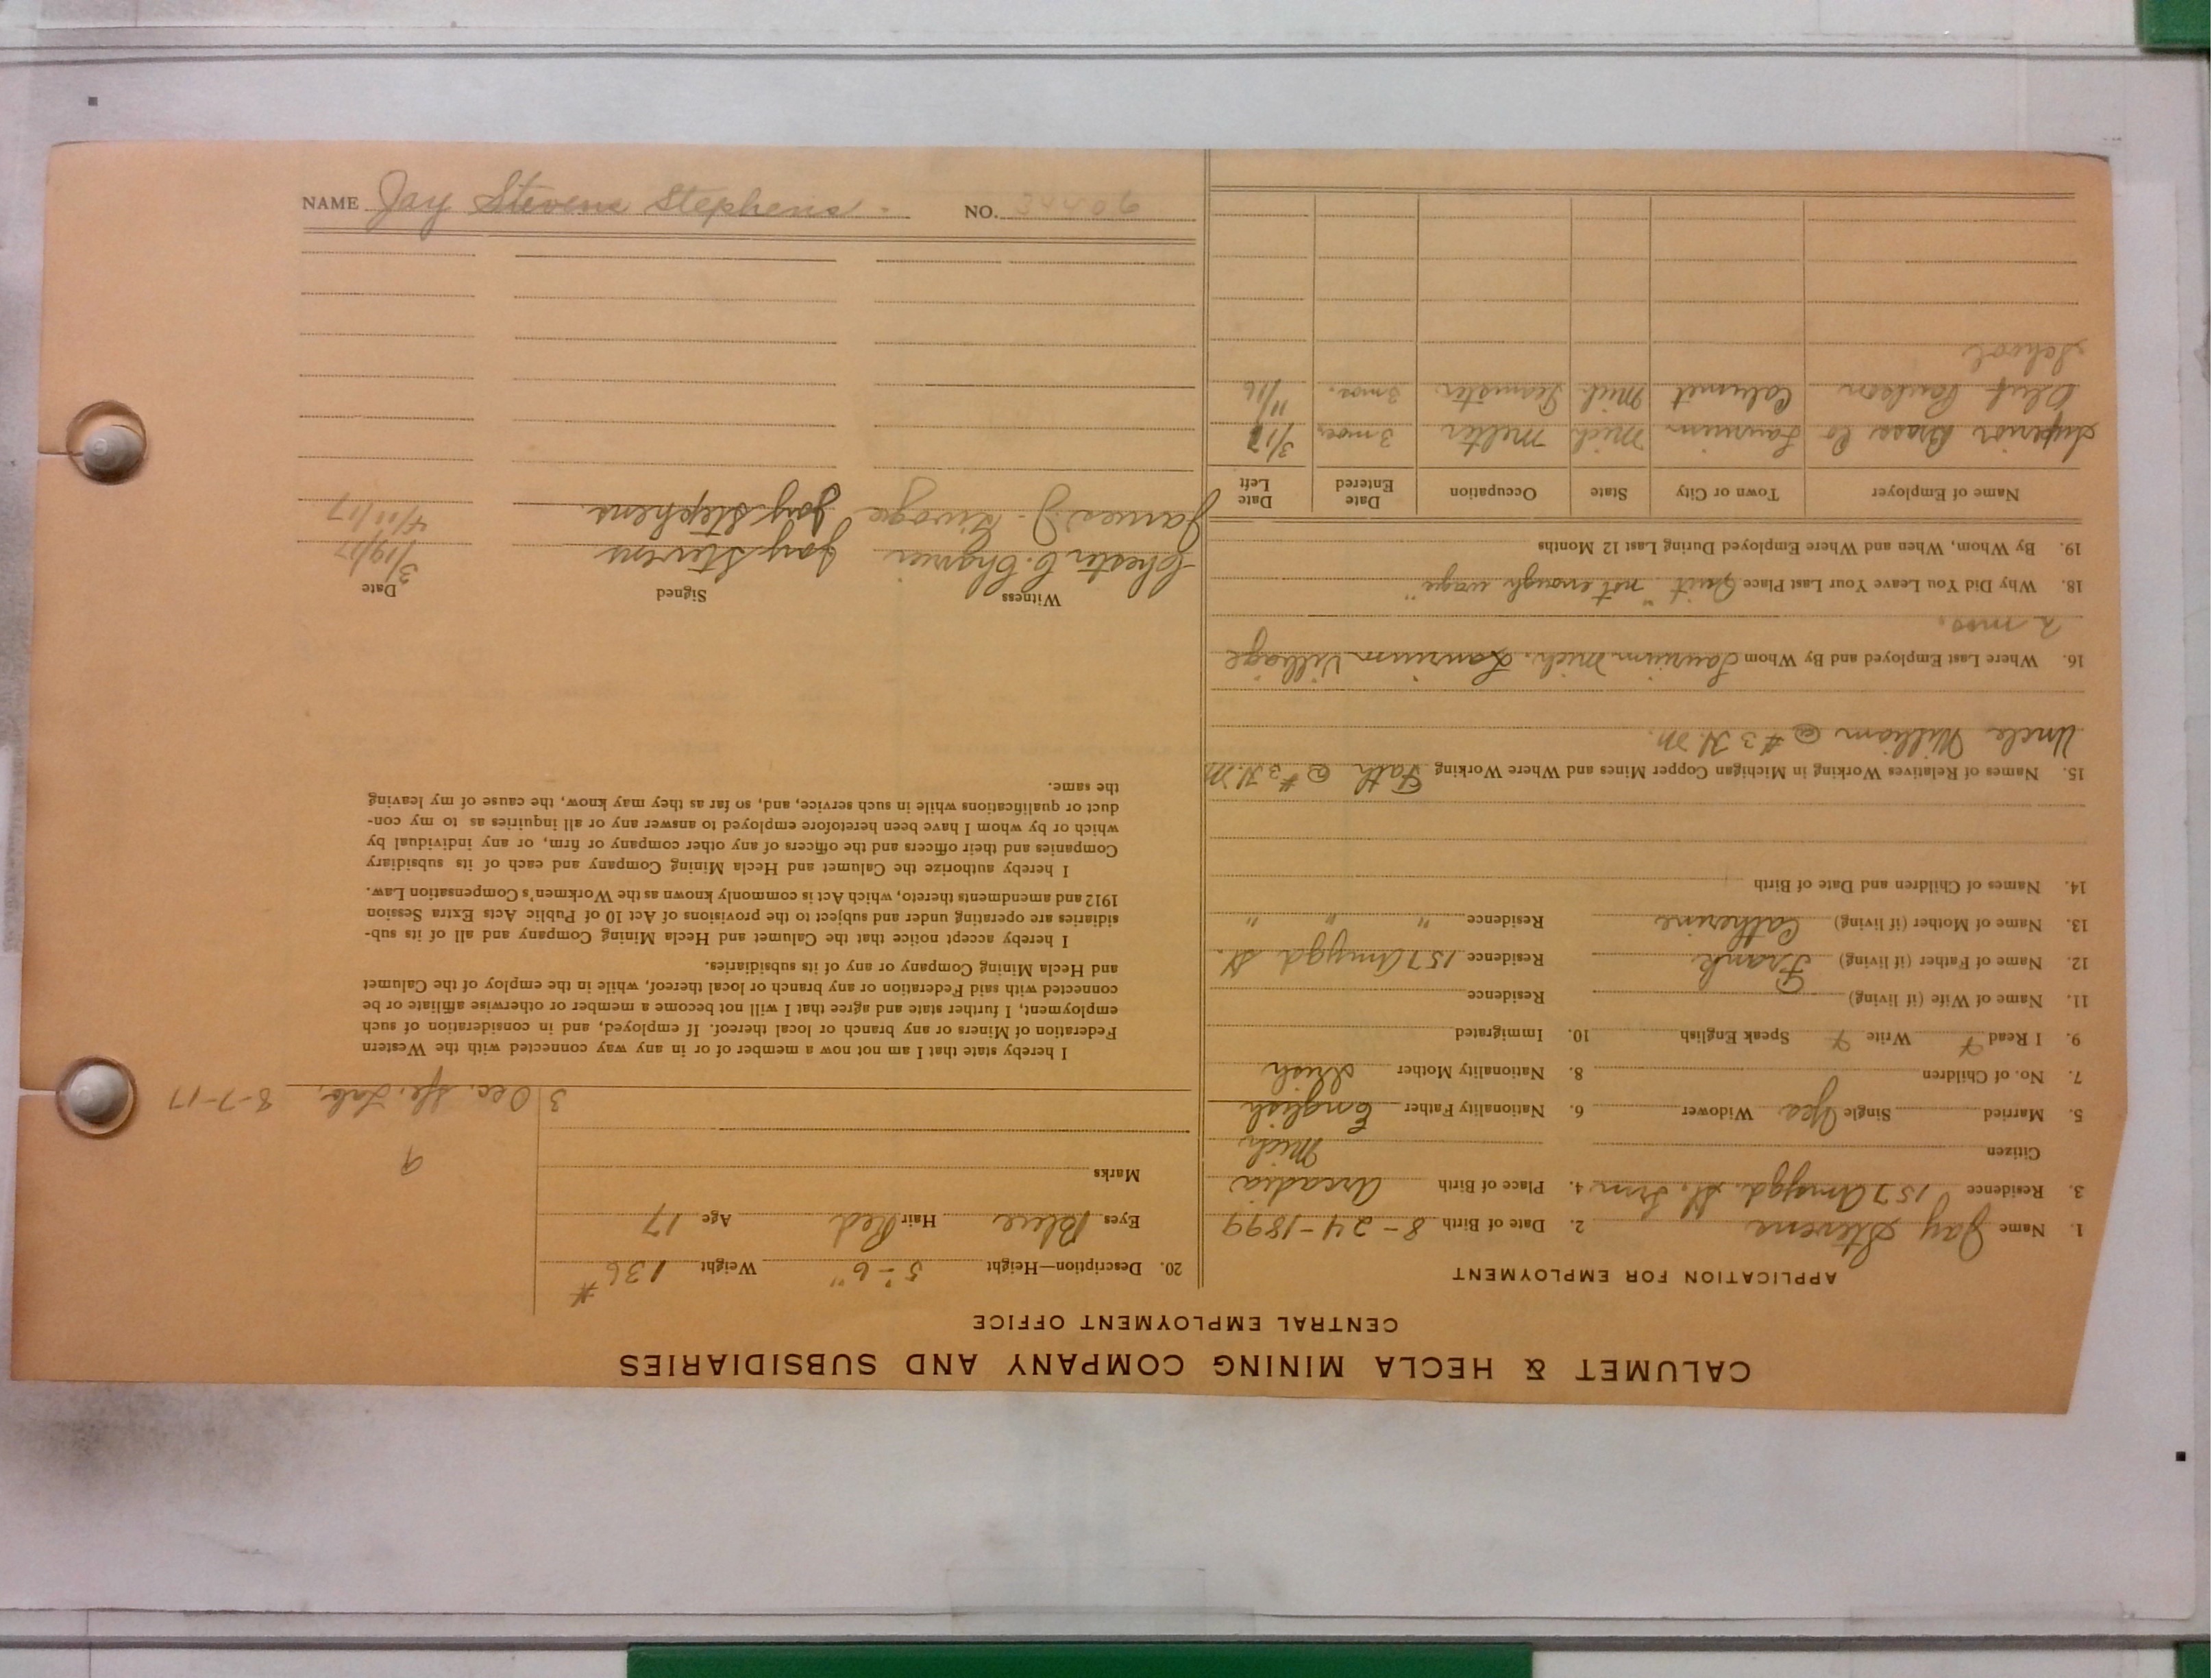 CALUMET & HECLA MINING COMPANY AND SUBSIDIARIES
CENTRAL EMPLOYMENT OFFICE
APPLICATION FOR EMPLOYMENT
1. Name Jay Stevens 2. Date of Birth 8-24-1899
3. Residence 157 Amygd. St. Lrm. 4. Place of Birth Arcadia
Citizen Mich.
5. Married Single Yes Widower 6. Nationality Father English
7. No. of Children 8. Nationality Mother Irish
9. I Read Write Speak English 10. Immigrated
11. Name of Wife (if living) Residence
12. Name of Father (if living) Frank Residence 157 Amygd St.
13. Name of Mother (if living) Catherine Residence " " "
14. Names of Children and Date of Birth
15. Names of Relatives Working in Michigan Copper Mines and Where Working Fath @ #3 H.M.
Uncle William @ #3 H.M.
16. Where Last Employed and By Whom Laurium Mich. Laurium Village
2 mos.
18. Why Did You Leave Your Last Place Quit "not enough wage"
19. By Whom, When and Where Employed During Last 12 Months
Name of Employer Town or City State Occupation Date Entered Date Left
Superior Brass Co Laurium Mich Melter 3 mos. 3/17
Oluf Paulson Calumet Mich. Teamster 3 mos. 11/16
School
20. Description—Height 5'-6" Weight 136 #
Eyes Blue Hair Red Age 17
Marks
9
3 Dec. Lab. 8-7-17
I hereby state that I am not now a member of or in any way connected with the Western
Federation of Miners or any branch or local thereof. If employed, and in consideration of such
employment, I further state and agree that I will not become a member or otherwise affiliate or be
connected with said Federation or any branch or local thereof, while in the employ of the Calumet
and Hecla Mining Company or any of its subsidiaries.
I hereby accept notice that the Calumet and Hecla Mining Company and all of its sub-
sidiaries are operating under and subject to the provisions of Act 10 of Public Acts Extra Session
1912 and amendments thereto, which Act is commonly known as the Workmen's Compensation Law.
I hereby authorize the Calumet and Hecla Mining Company and each of its subsidiary
Companies and their officers and the officers of any other company or firm, or any individual by
which or by whom I have been heretofore employed to answer any or all inquiries as to my con-
duct or qualifications while in such service, and, so far as they may know, the cause of my leaving
the same.
Witness Signed Date
Chester C. Jay Stevens 3/19/17
James J. Jay Stephens.
NAME Jay Stevens Stephens. NO.